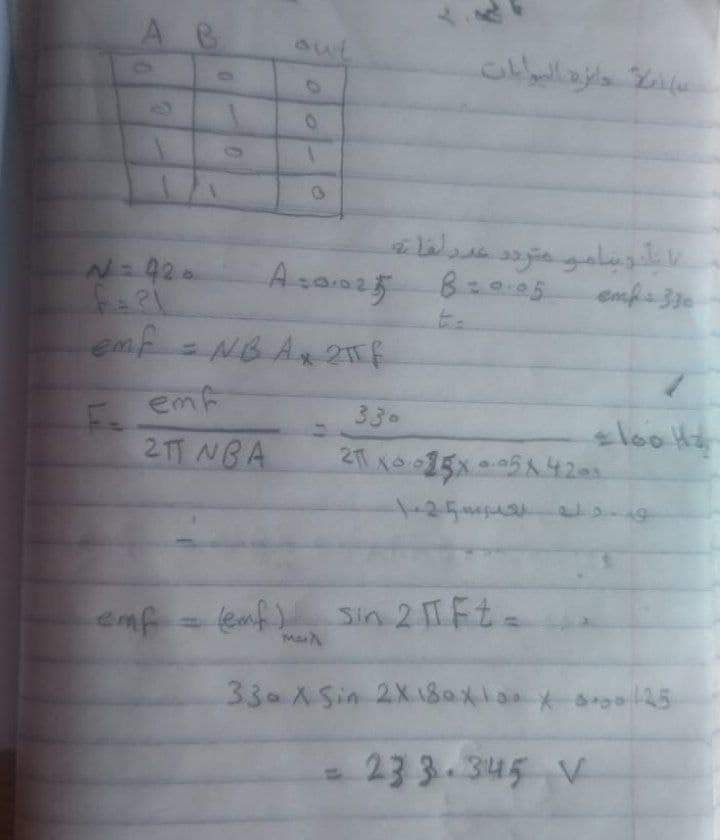 A B out
0 0 0
0 1 0
1 0 1
1 1 0
N = 420 A = 0.025 B = 0.05 emf = 330
f = ?
t =
emf = NBA × 2πf
F = emf / 2π NBA = 330 / 2π × 0.025 × 0.05 × 420 = 100 Hz
1.25 m
emf = (emf)max sin 2πFt =
330 × sin 2×180×100 × 0.00125
= 233.345 V